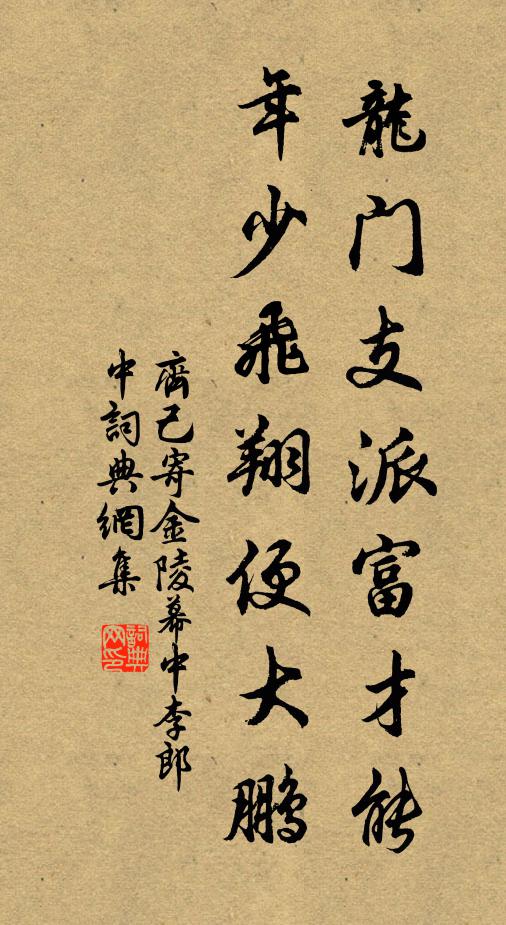 龍门支派富才能
年少飛翔便大鵬
齊己寄金陵幕中李郎
中詞典網集
詞典
网印